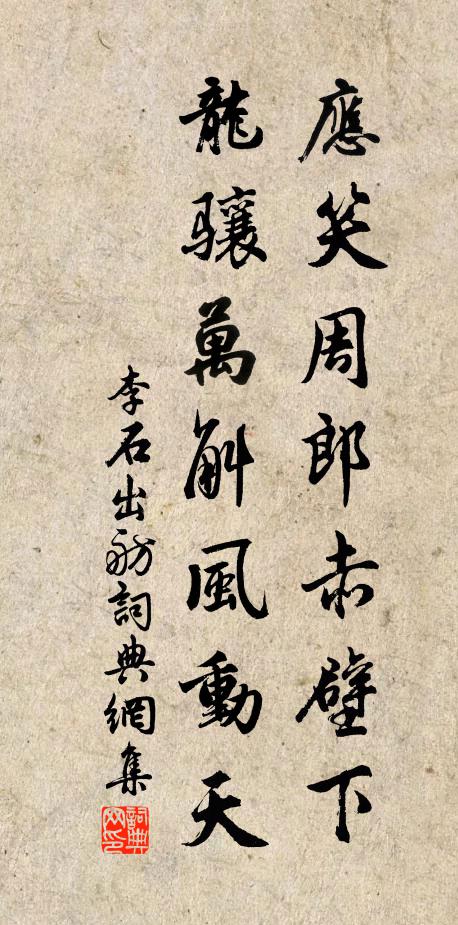 應笑周郎赤壁下
龍驤萬斛風動天
李石出舫詞典網集
詞典网印